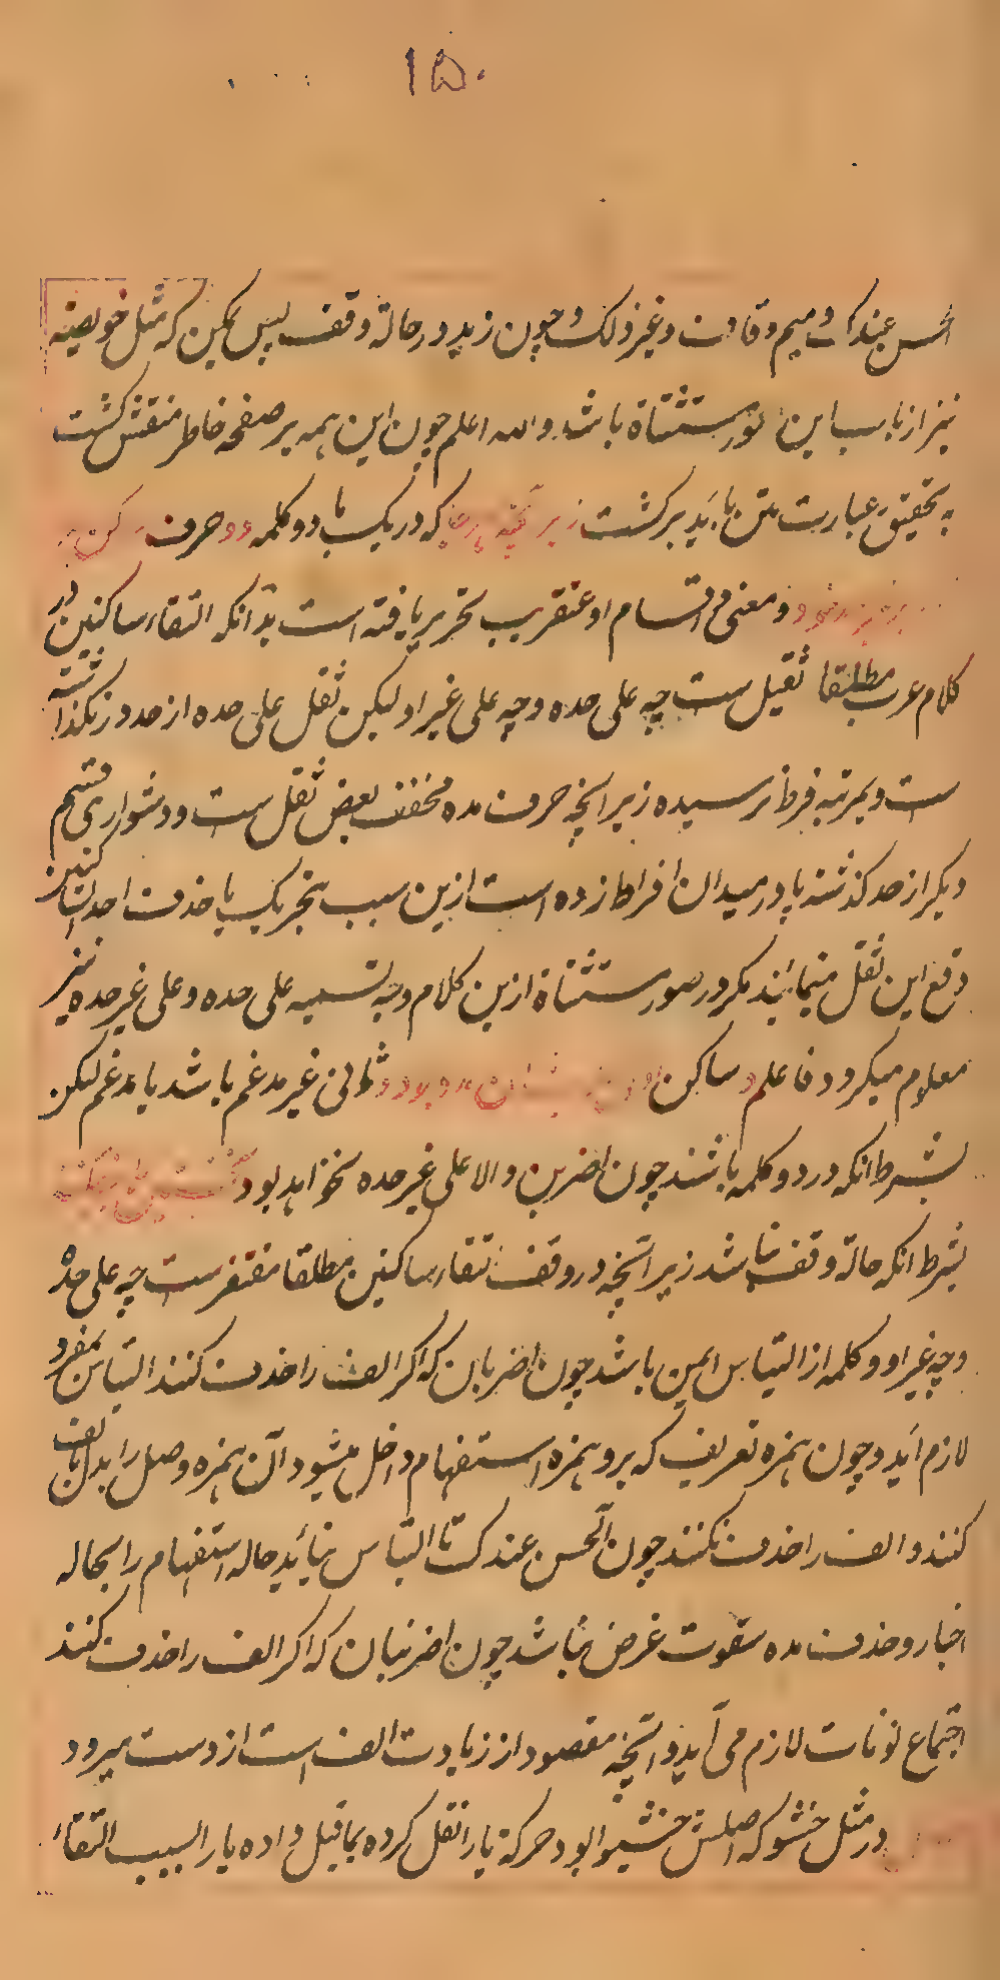 ۱۵۰
الحسن عندک و میم و قاف و غیر ذلک و چون زید در حالة وقف پس یمکن که مثل خویصه
نیز از باب این صور مستثناة باشد والله اعلم چون این همه بر صفحه خاطر منقش کشت
به تحقیق عبارت متن باید برکشت که در یک یا دو کلمه دو حرف
و معنی و اقسام او عنقریب تحریر یافته است بدانکه التقاء ساکنین در
کلام عرب مطلقا ثقیل ست چه علی حده و چه علی غیر او لیکن ثقل علی حده از حد در نکذشته
ست و بمرتبه فرط نرسیده زیرانچه حرف مده مخفف بعض ثقل ست و دشواری قسم
دیکر از حد کذشته پا در میدان افراط زده است ازین سبب بتحریک یا حذف احد الساکنین
دفع این ثقل مینمایند مکر در صور مستثناة ازین کلام وجه تسمیه علی حده و علی غیر حده نیز
معلوم میکردد فاعلم ساکن ثانی غیر مدغم باشد یا مدغم لیکن
بشرط انکه در دو کلمه باشند چون اضربن والا علی غیر حده نخواهد بود
بشرط انکه حالة وقف نباشد زیرانچه در وقف التقاء ساکنین مطلقا مغتفر ست چه علی حده
و چه غیر او و کلمه از التباس ایمن باشد چون اضربان که اکر الف را حذف کنند التباس بمفرد
لازم آید و چون همزه تعریف که برو همزه استفهام داخل میشود آن همزه وصل را بدل بالف
کنند و الف را حذف نکنند چون آلحسن عندک تا التباس نیاید حاله استفهام را بحاله
اخبار و حذف مده مفوت غرض نباشد چون اضربنان که اکر الف را حذف کنند
اجتماع نونات لازم می آید و انچه مقصود از زیادت الف است از دست میرود
در مثل خشوا که اصلش خشیوا بود حرکة یا را نقل کرده بماقبل داده یا را بسبب التقاء